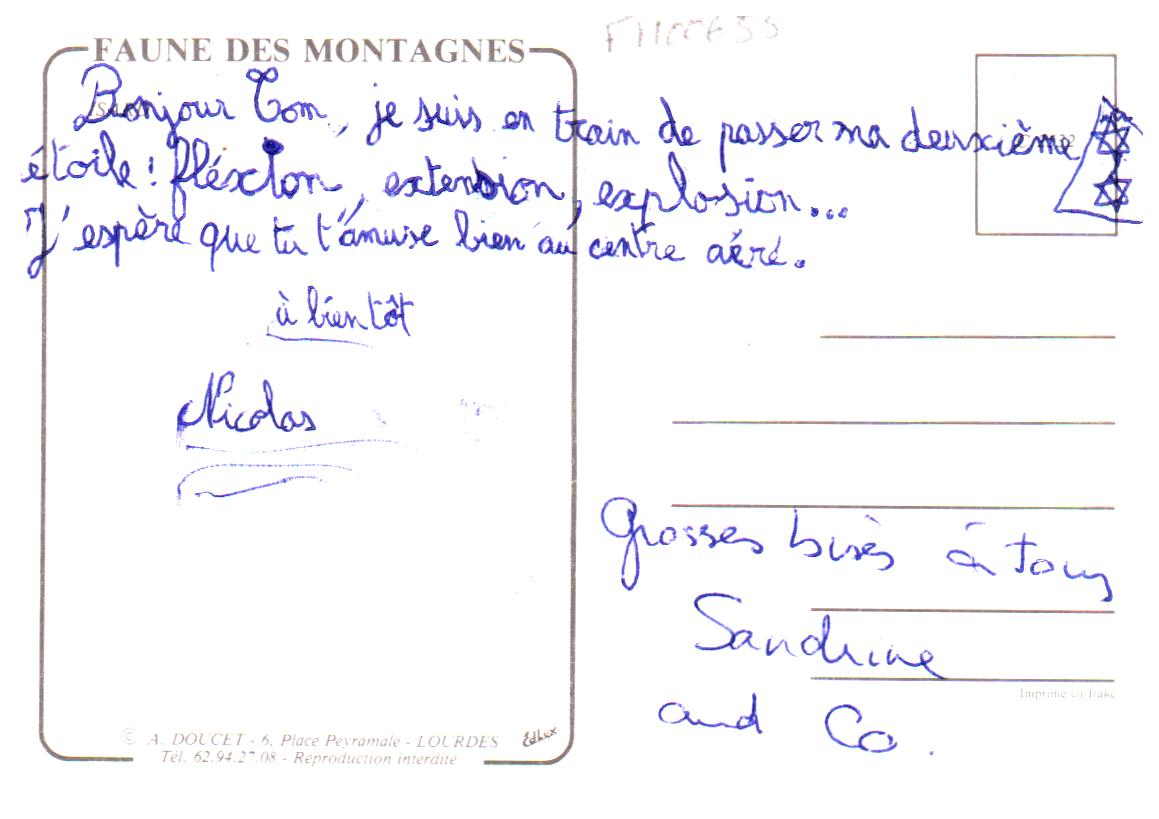 FAUNE DES MONTAGNES
Bonjour Tom, je suis en train de passer ma deuxième
étoile ! fléxion, extension, explosion...
J'espère que tu t'amuse bien au centre aéré.
à bientôt
Nicolas
Grosses bises à tous
Sandrine
and Co.
Imprimé en Italie
© A. DOUCET - 6, Place Peyramale - LOURDES
Edlux
Tél. 62.94.27.08 - Reproduction interdite